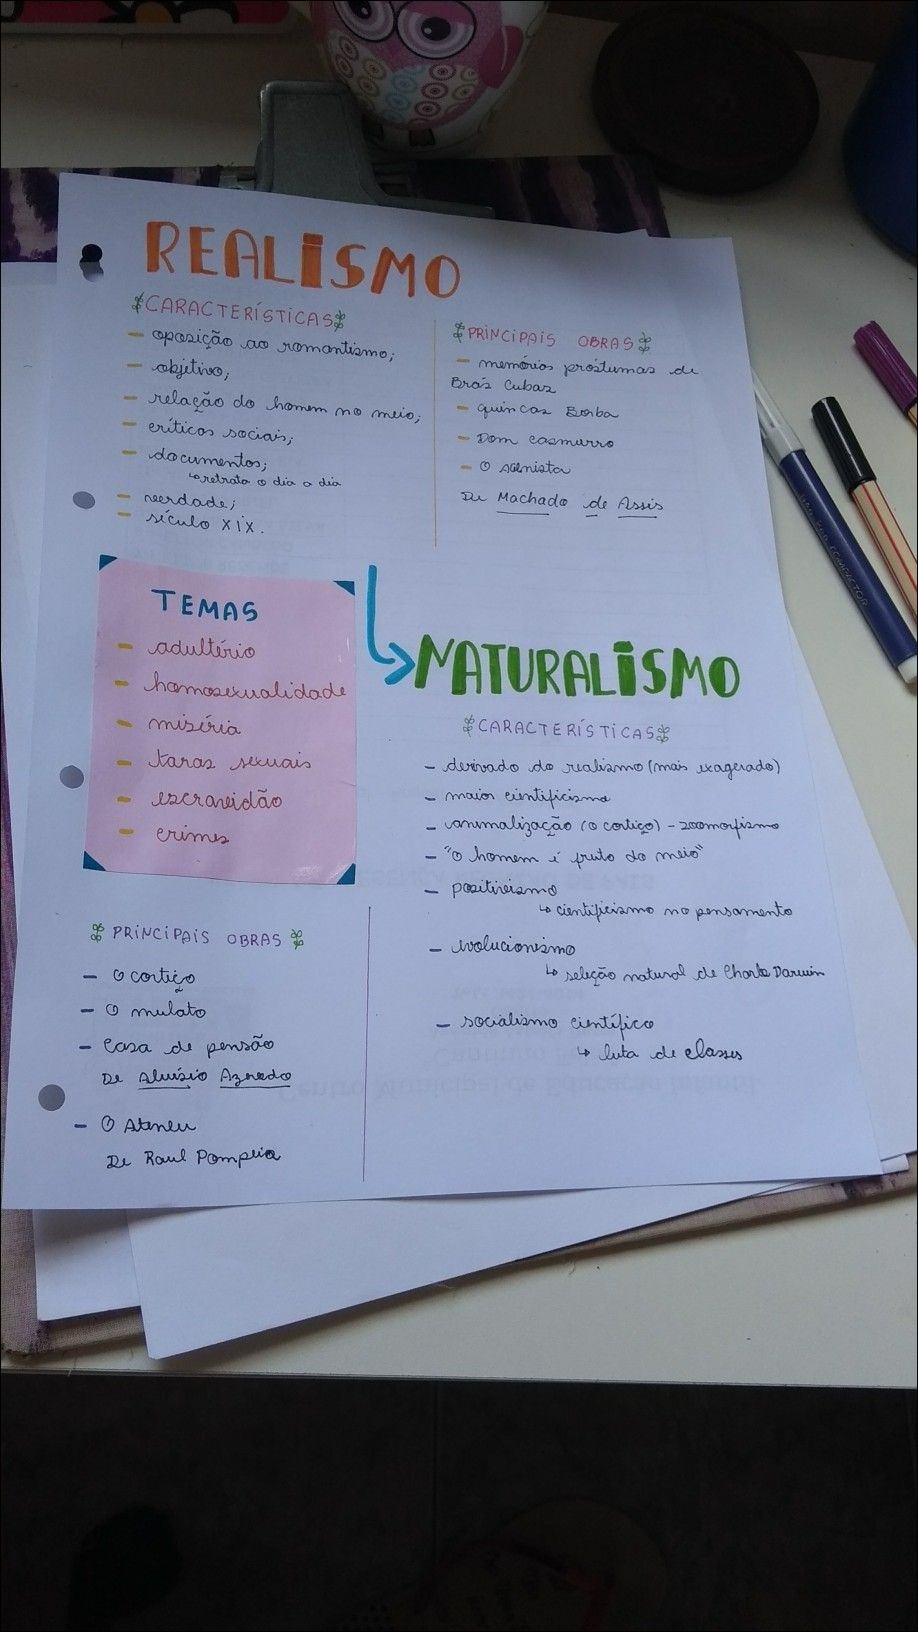 REALISMO
CARACTERÍSTICAS
- oposição ao romantismo;
- objetivo;
- relação do homem no meio;
- críticas sociais;
- documentos;
↳ retrata o dia a dia
- verdade;
- século XIX.
PRINCIPAIS OBRAS
- memórias próstumas de
Brás Cubas
- quincas Borba
- Dom casmurro
- O Alienista
De Machado de Assis
TEMAS
- adultério
- homosexualidade
- miséria
- taras sexuais
- escravidão
- crimes
NATURALISMO
CARACTERÍSTICAS
- derivado do realismo (mais exagerado)
- maior cientificismo
- animalização (o cortiço) - zoomorfismo
- "o homem é fruto do meio"
- positivismo
↳ cientificismo no pensamento
- evolucionismo
↳ seleção natural de Charles Darwin
- socialismo científico
↳ luta de classes
PRINCIPAIS OBRAS
- O cortiço
- O mulato
- Casa de pensão
De Aluísio Azevedo
- O Ateneu
De Raul Pompeia
COMPACTOR